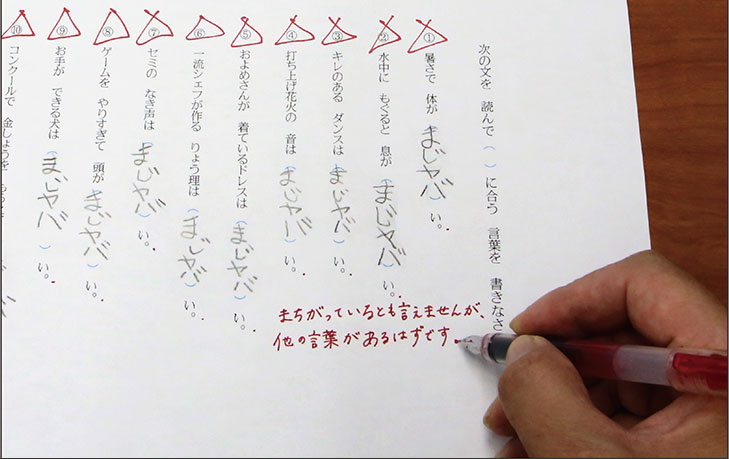 次の文を 読んで( )に合う 言葉を 書きなさ
① 暑さで 体が(まじヤバ)い。
② 水中に もぐると 息が(まじヤバ)い。
③ キレのある ダンスは(まじヤバ)い。
④ 打ち上げ花火の 音は(まじヤバ)い。
⑤ およめさんが 着ているドレスは(まじヤバ)い。
⑥ 一流シェフが作る りょう理は(まじヤバ)い。
⑦ セミの なき声は(まじヤバ)い。
⑧ ゲームを やりすぎて 頭が(まじヤバ)い。
⑨ お手が できる犬は(まじヤバ)い。
⑩ コンクールで 金しょうを
まちがっているとも言えませんが、
他の言葉があるはずです。